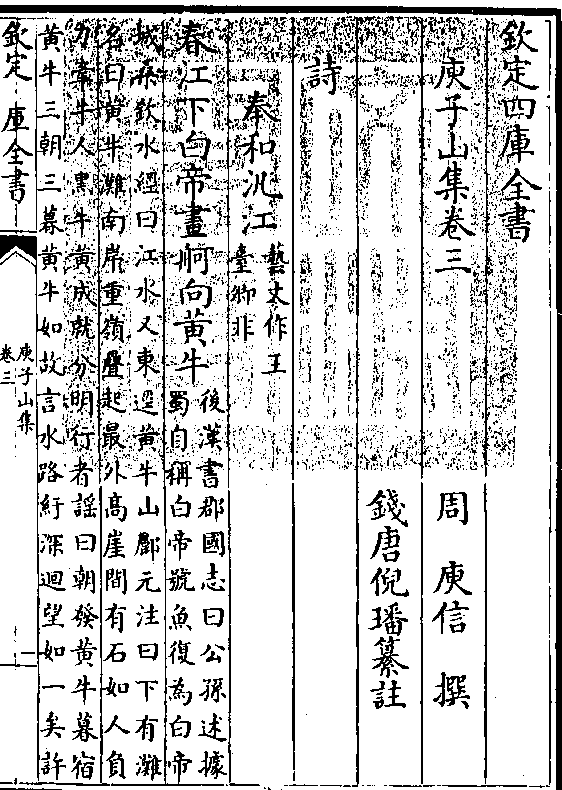 欽定四庫全書
庾子山集卷三
周 庾信 撰
錢唐倪璠纂註
詩
奉和泛江藝文作王臺卿非
春江下白帝畫舸向黃牛後漢書郡國志曰公孫述據蜀自稱白帝號魚復為白帝
城桑欽水經曰江水又東逕黃牛山酈元注曰下有灘
名曰黃牛灘南岸重嶺疊起最外高崖間有石如人負
刀牽牛人黑牛黃成就分明行者謠曰朝發黃牛暮宿
黃牛三朝三暮黃牛如故言水路紆深迴望如一矣許
欽定四庫全書
庾子山集
卷三
一